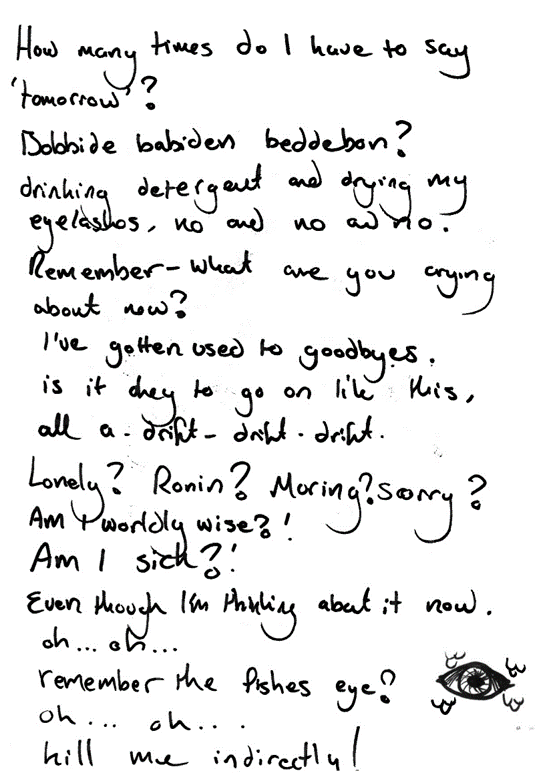 How many times do I have to say
'tomorrow'?
Bobbide babiden beddebon?
drinking detergent and drying my
eyelashos, no and no and no.
Remember - what are you crying
about now?
I've gotten used to goodbyes.
is it okey to go on like this,
all a - drift - drift - drift.
Lonely? Ronin? Moring? Sorry?
Am I worldly wise?!
Am I sick?!
Even though I'm thinking about it now.
oh... oh...
remember the fishes eye?
oh... oh....
kill me indirectly!